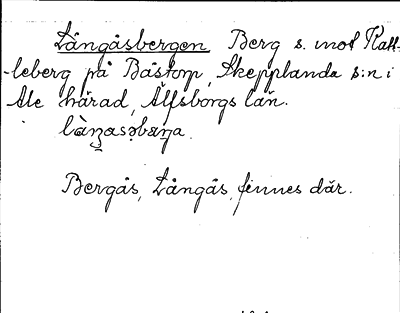 Långåsbergen Berg s. mot Katt-
-leberg på Båstorp, Skepplanda s:n i
Ale härad, Älfsborgs län.
Bergås, Långås, finnes där.